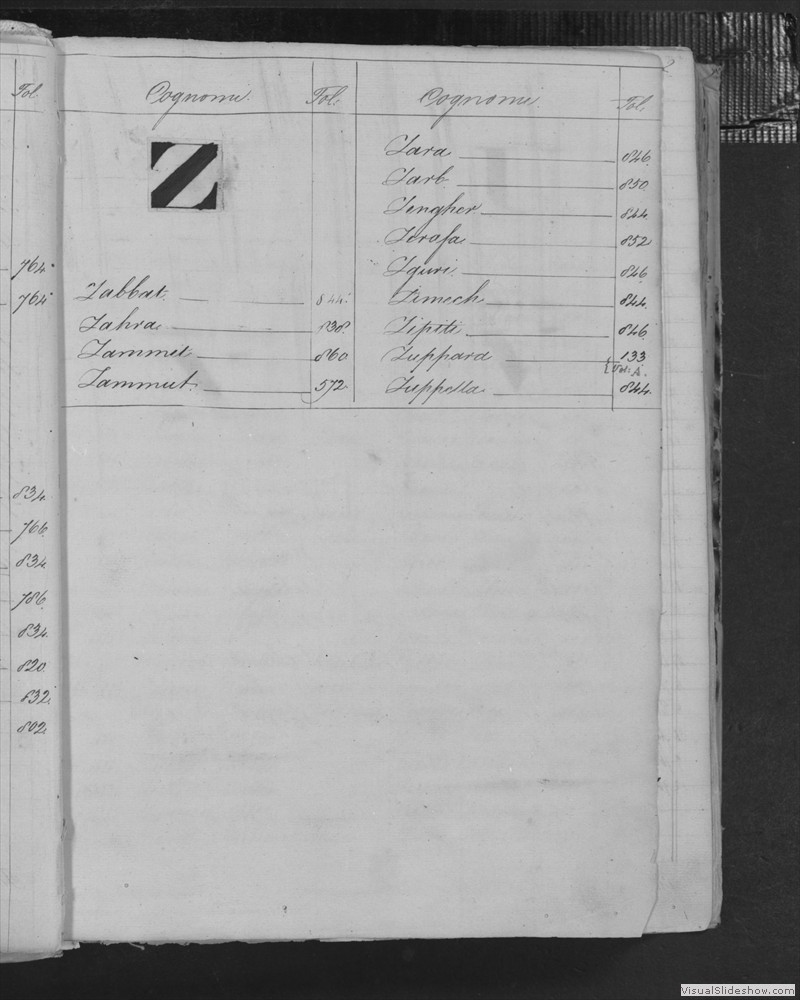 Fol.
764
764
834
766
834
786
834
820
832
802
Cognomi. Fol.
Z
Zabbat 844
Zahra 838
Zammit 860
Zammut 572
Cognomi. Fol.
Zara 846
Zarb 850
Zengher 844
Zerafa 852
Zguri 846
Zimech 844
Zipiti 846
Zuppard 133
Vol: A.
Zuppella 844
VisualSlideshow.com